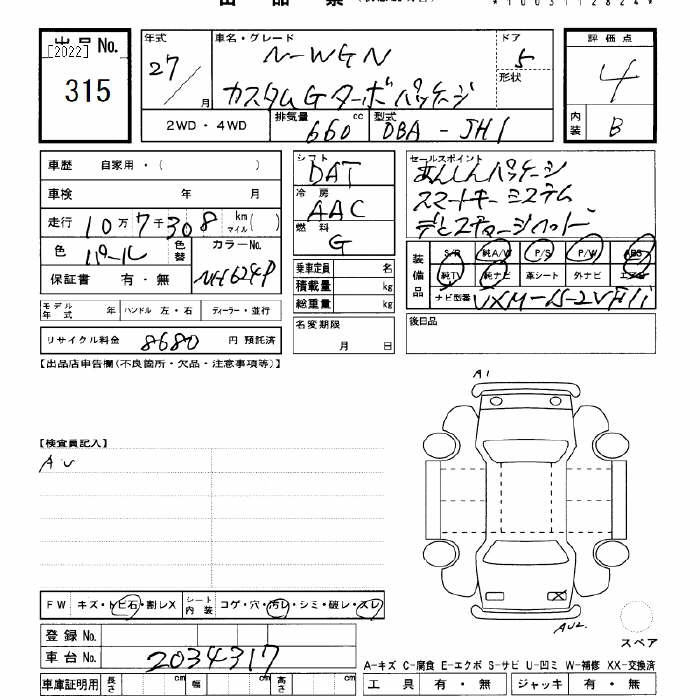 出品票
*10031128249*
出品No.
[2022]
315
年式 27 年 月
車名・グレード N-WGN
カスタムG ターボパッケージ
ドア 5
形状
評価点 4
内装 B
2WD・4WD
排気量 660 cc
型式 DBA-JH1
車歴 自家用・( )
車検 年 月
走行 10万7千308 km マイル( )
色 パール 色替
カラーNo. NH624P
保証書 有・無
シフト DAT
冷房 AAC
燃料 G
乗車定員 名
積載量 kg
総重量 kg
セールスポイント
あんしんパッケージ
スマートキーシステム
装備品 S/R 純A/W P/S P/W ABS
純TV 純ナビ 革シート 外ナビ エアB
ナビ型番 VXM-152VFi
モデル年式 年 ハンドル 左・右 ディーラー・並行
名変期限 月 日
後日品
リサイクル料金 8680 円 預託済
【出品店申告欄(不良箇所・欠品・注意事項等)】
A1
【検査員記入】
AU
FW キズ・トビ石・割レX シート内装 コゲ・穴・汚レ・シミ・破レ・スレ
AU2
スペア
登録No.
車台No. 2034317
A-キズ C-腐食 E-エクボ S-サビ U-凹ミ W-補修 XX-交換済
車庫証明用 長さ cm 幅 cm 高さ cm
工具 有・無 ジャッキ 有・無